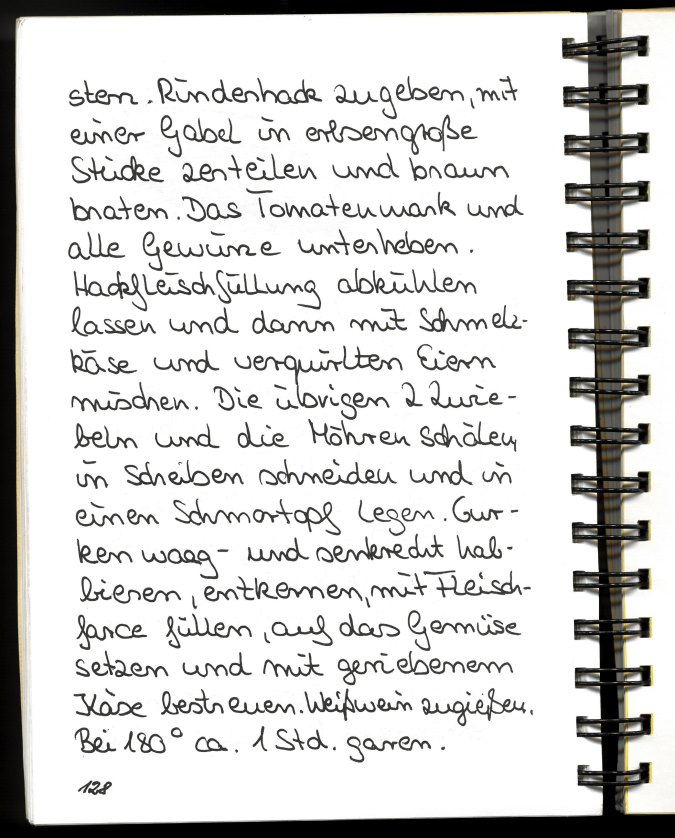 sten. Rinderhack zugeben, mit
einer Gabel in erbsengroße
Stücke zerteilen und braun
braten. Das Tomatenmark und
alle Gewürze unterheben.
Hackfleischfüllung abkühlen
lassen und dann mit Schmelz-
käse und verquirlten Eiern
mischen. Die übrigen 2 Zwie-
beln und die Möhren schälen,
in Scheiben schneiden und in
einen Schmortopf legen. Gur-
ken waag- und senkrecht hal-
bieren, entkernen, mit Fleisch-
farce füllen, auf das Gemüse
setzen und mit geriebenem
Käse bestreuen. Weißwein zugießen.
Bei 180° ca. 1 Std. garen.
128